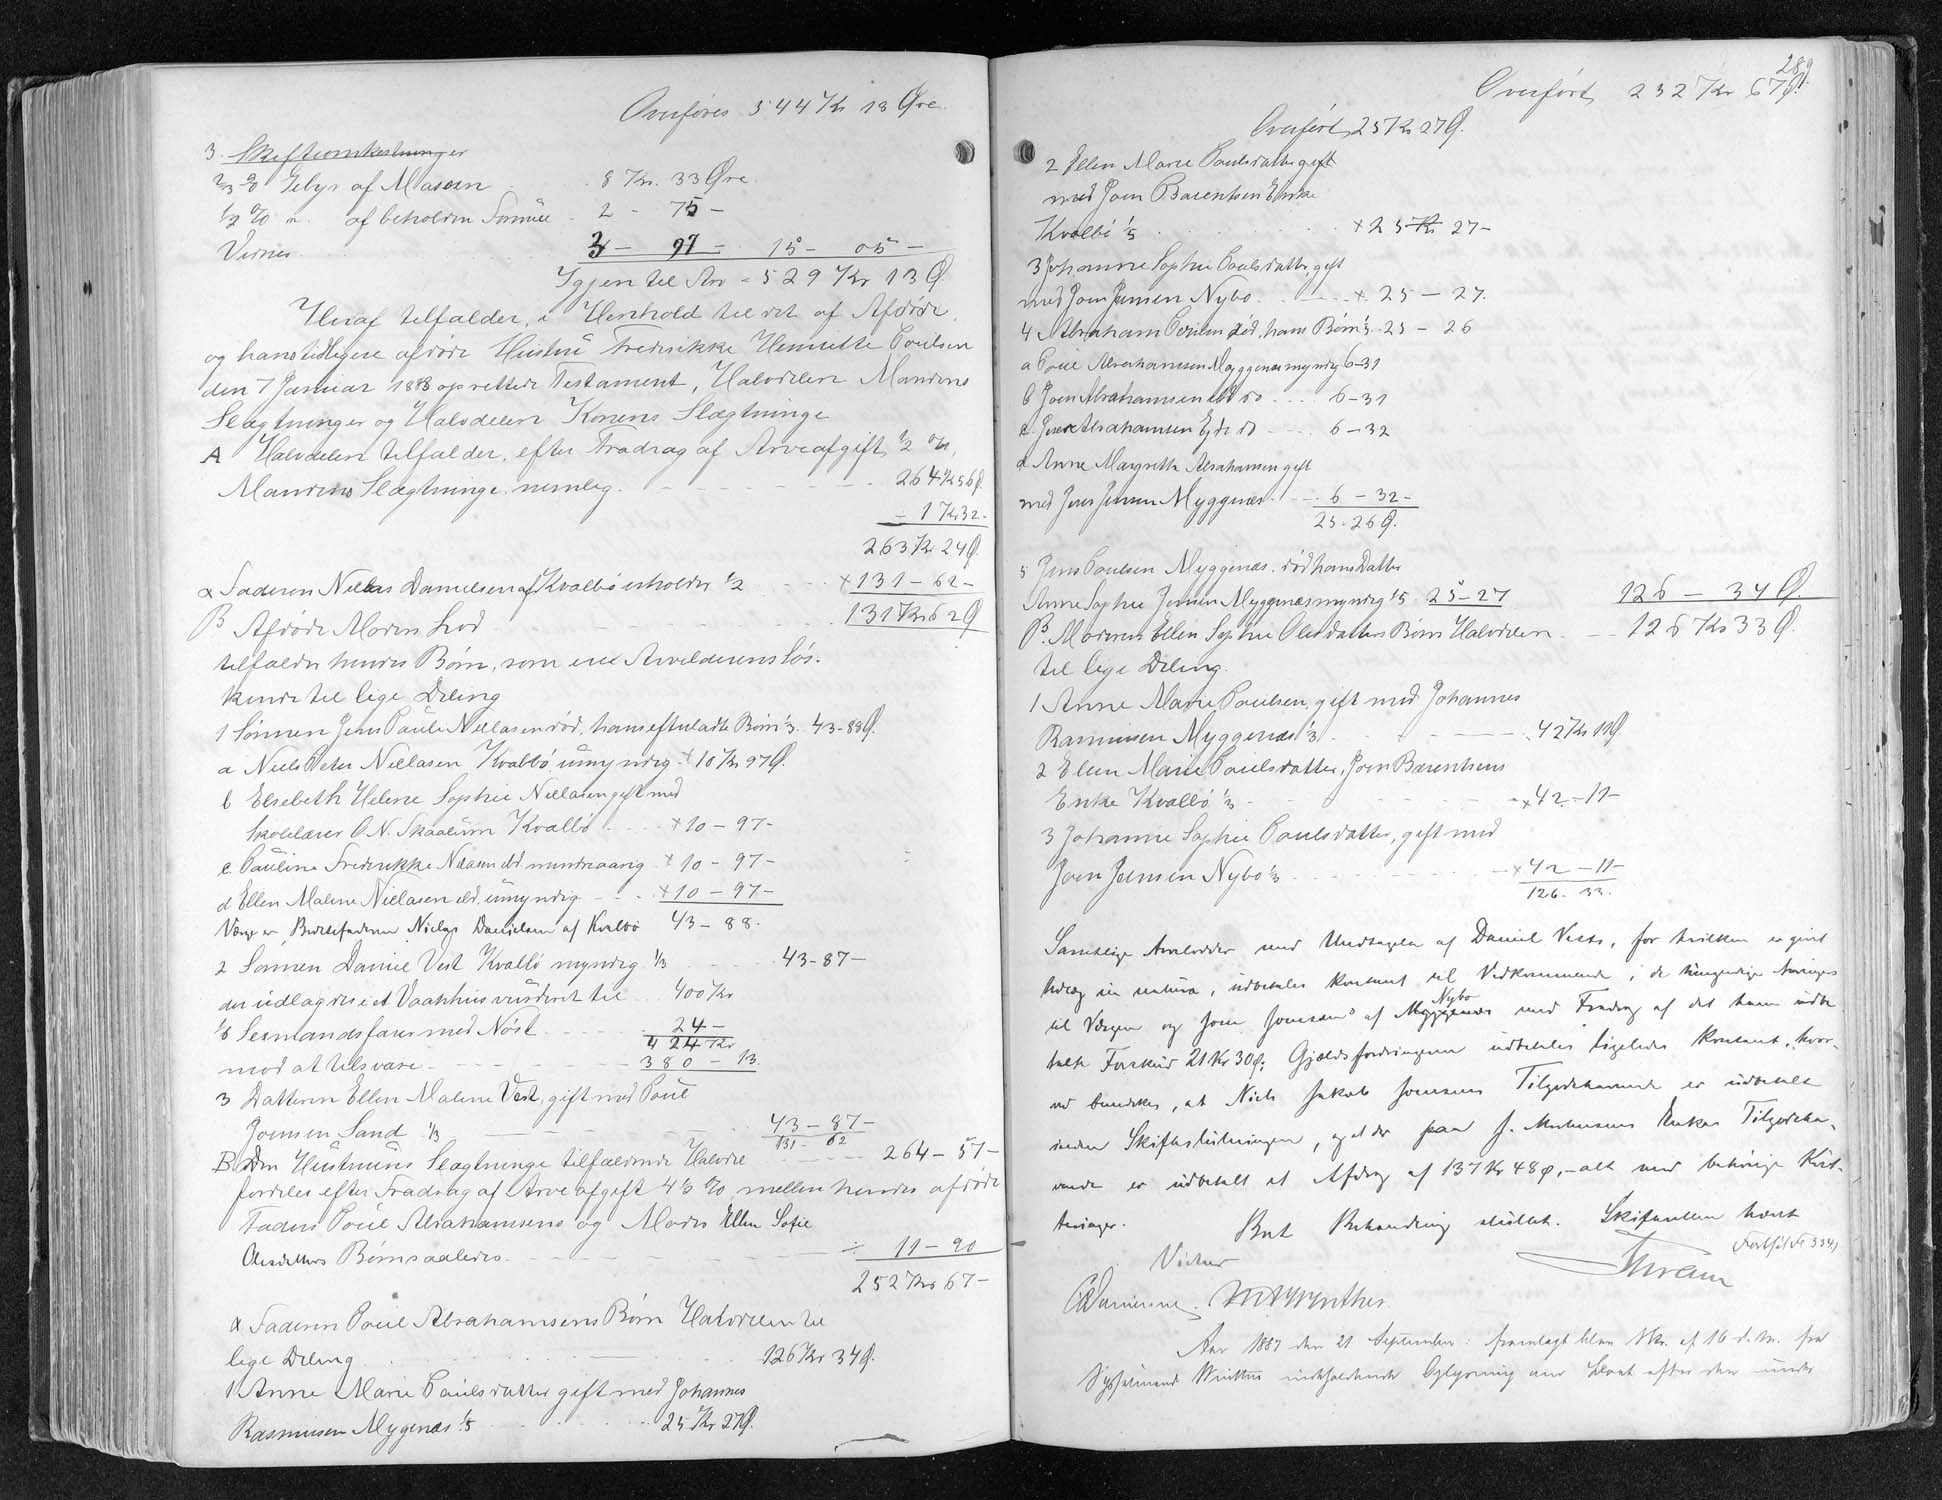 Overføres 544 Kr 18 Øre
3. Skifteomkostninger
2/3 % Gebyr af Massen 8 Kr. 33 Øre.
1/2 % n. af beholden Formue 2 - 75 -
Vidner 3 - 97 - 15 - 05 -
Igjen til Arv - 529 Kr 13 Ø
Heraf tilfalder, i Henhold til det af Afdøde,
og hans tidligere afdøde Hustru Frederikke Henriette Poulsen
den 7 Januar 1883 oprettede Testament, Halvdelen Mandens
Slægtninge og Halvdelen Konens Slægtninge
A Halvdelen tilfalder, efter Fradrag af Arveafgift 1/2 %,
Mandens Slægtninge nemlig. 264 Kr 56 Ø.
- 1 Kr 32 -
263 Kr 24 Ø.
α Faderen Niclas Danielsen af Kvalbø erholder 1/2 + 131 - 62 -
131 Kr 62 Ø
β Afdøde Moders Lod
tilfalder hendes Børn, som ere Arveladerens Søs-
kende til lige Deling
1 Sønnen Jens Paule Niclasen død, hans efterladte Børn 1/3. 43 - 88 Ø.
a Niels Peter Niclasen Kvalbø umyndig + 10 Kr 97 Ø.
b Elsebeth Helene Sophie Niclasen gift med
Skolelærer O. N. Skaalum Kvalbø + 10 - 97 -
c Pauline Frederikke Niclasen ibd mindreaarig + 10 - 97 -
d Ellen Malene Niclasen ibd. umyndig + 10 - 97 -
Værge er Bedstefaderen Niclas Danielsen af Kvalbø 43 - 88.
2 Sønnen Daniel Vest Kvalbø myndig 1/3 43 - 87 -
der udlagdes et Vaahus vurderet til 400 Kr
1/6 Sexmandsfarer med Nøst 24 -
424 Kr
mod at tilsvare 380 - 13.
3 Datteren Ellen Malene Vest, gift med Poul
Joensen Sand 1/3 43 - 87 -
131 - 62
B. Den Hustruens Slægtninge tilfaldende Halvdel 264 - 57 -
fordeles efter Fradrag af Arveafgift 4 1/2 % mellem hendes afdøde
Faders Poul Abrahamsens og Moder Ellen Sofie
Olesdatters Børn saaledes ÷ 11 - 90
252 Kr 67 -
α Faderen Poul Abrahamsens Børn Halvdelen til
lige Deling 126 Kr 34 Ø.
1 Anne Marie Poulsdatter gift med Johannes
Rasmussen Mygenæs 1/5 25 Kr 27 Ø.
289
Overført 252 Kr 67 Ø.
Overført 25 Kr 27 Ø.
2 Ellen Marie Poulsdatter gift
med Joen Barentsen Enke
Kvalbø 1/5 + 25 Kr 27 -
3 Johanne Sophie Poulsdatter, gift
med Joen Joensen Nybo + 25 - 27.
4 Abraham Poulsen død, hans Børn 1/5 25 - 26
a Poul Abrahamsen Myggenæs myndig 6 - 31
b Joen Abrahamsen ibd do 6 - 31
c Abrahamsen do 6 - 32
d Anne Margrethe Abrahamsen gift
med Jens Jensen Myggenæs 6 - 32 -
25 - 26 Ø.
5 Jens Poulsen Myggenæs død hans Datter
Anne Sophie Jensen Myggenæs myndig 1/5 25 - 27 126 - 34 Ø.
β. Moderen Ellen Sophie Olesdatters Børn Halvdelen 126 Kr 33 Ø.
til lige Deling.
1 Anne Marie Poulsen, gift med Johannes
Rasmussen Myggenæs 1/3 42 Kr 11 Ø.
2 Ellen Marie Poulsdatter, Joen Barentsens
Enke Kvalbø 1/3 + 42 - 11 -
3 Johanne Sophie Poulsdatter, gift med
Joen Joensen Nybo 1/3 + 42 - 11 -
126. 33.
Samtlige Arvelodder med Undtagelse af Daniel Vests, for hvilken er givet
Udlæg in natura, udbetales kontant til Vedkommende, i de umyndige Arvinger
til Værgen og Joen Joensens af Myggenæs Nybo med Fradrag af det ham udbe
talte Forskud 21 Kr 30 Ø; Gjældsfordringerne udbetales ligeledes kontant, hvor-
ved bemærkes, at Niels Jakob Joensens Tilgodehavende er udbetalt
inden Skifteslutningen, og at der paa J. Mortensens Enkes Tilgodeha-
vende er udbetalt et Afdrag af 137 Kr 48 Ø, - alt mod behørige Kvit-
teringer.
Bnt Behandling sluttet. Skifteretten hævet
(Forts. Fol 334)
Vidner
Danielsen. Winther
Aar 1887 den 21 September: fremlagt blev Skr. af 16 d. M. fra
Sysselmand Winther indeholdende Oplysning om Boet efter den under